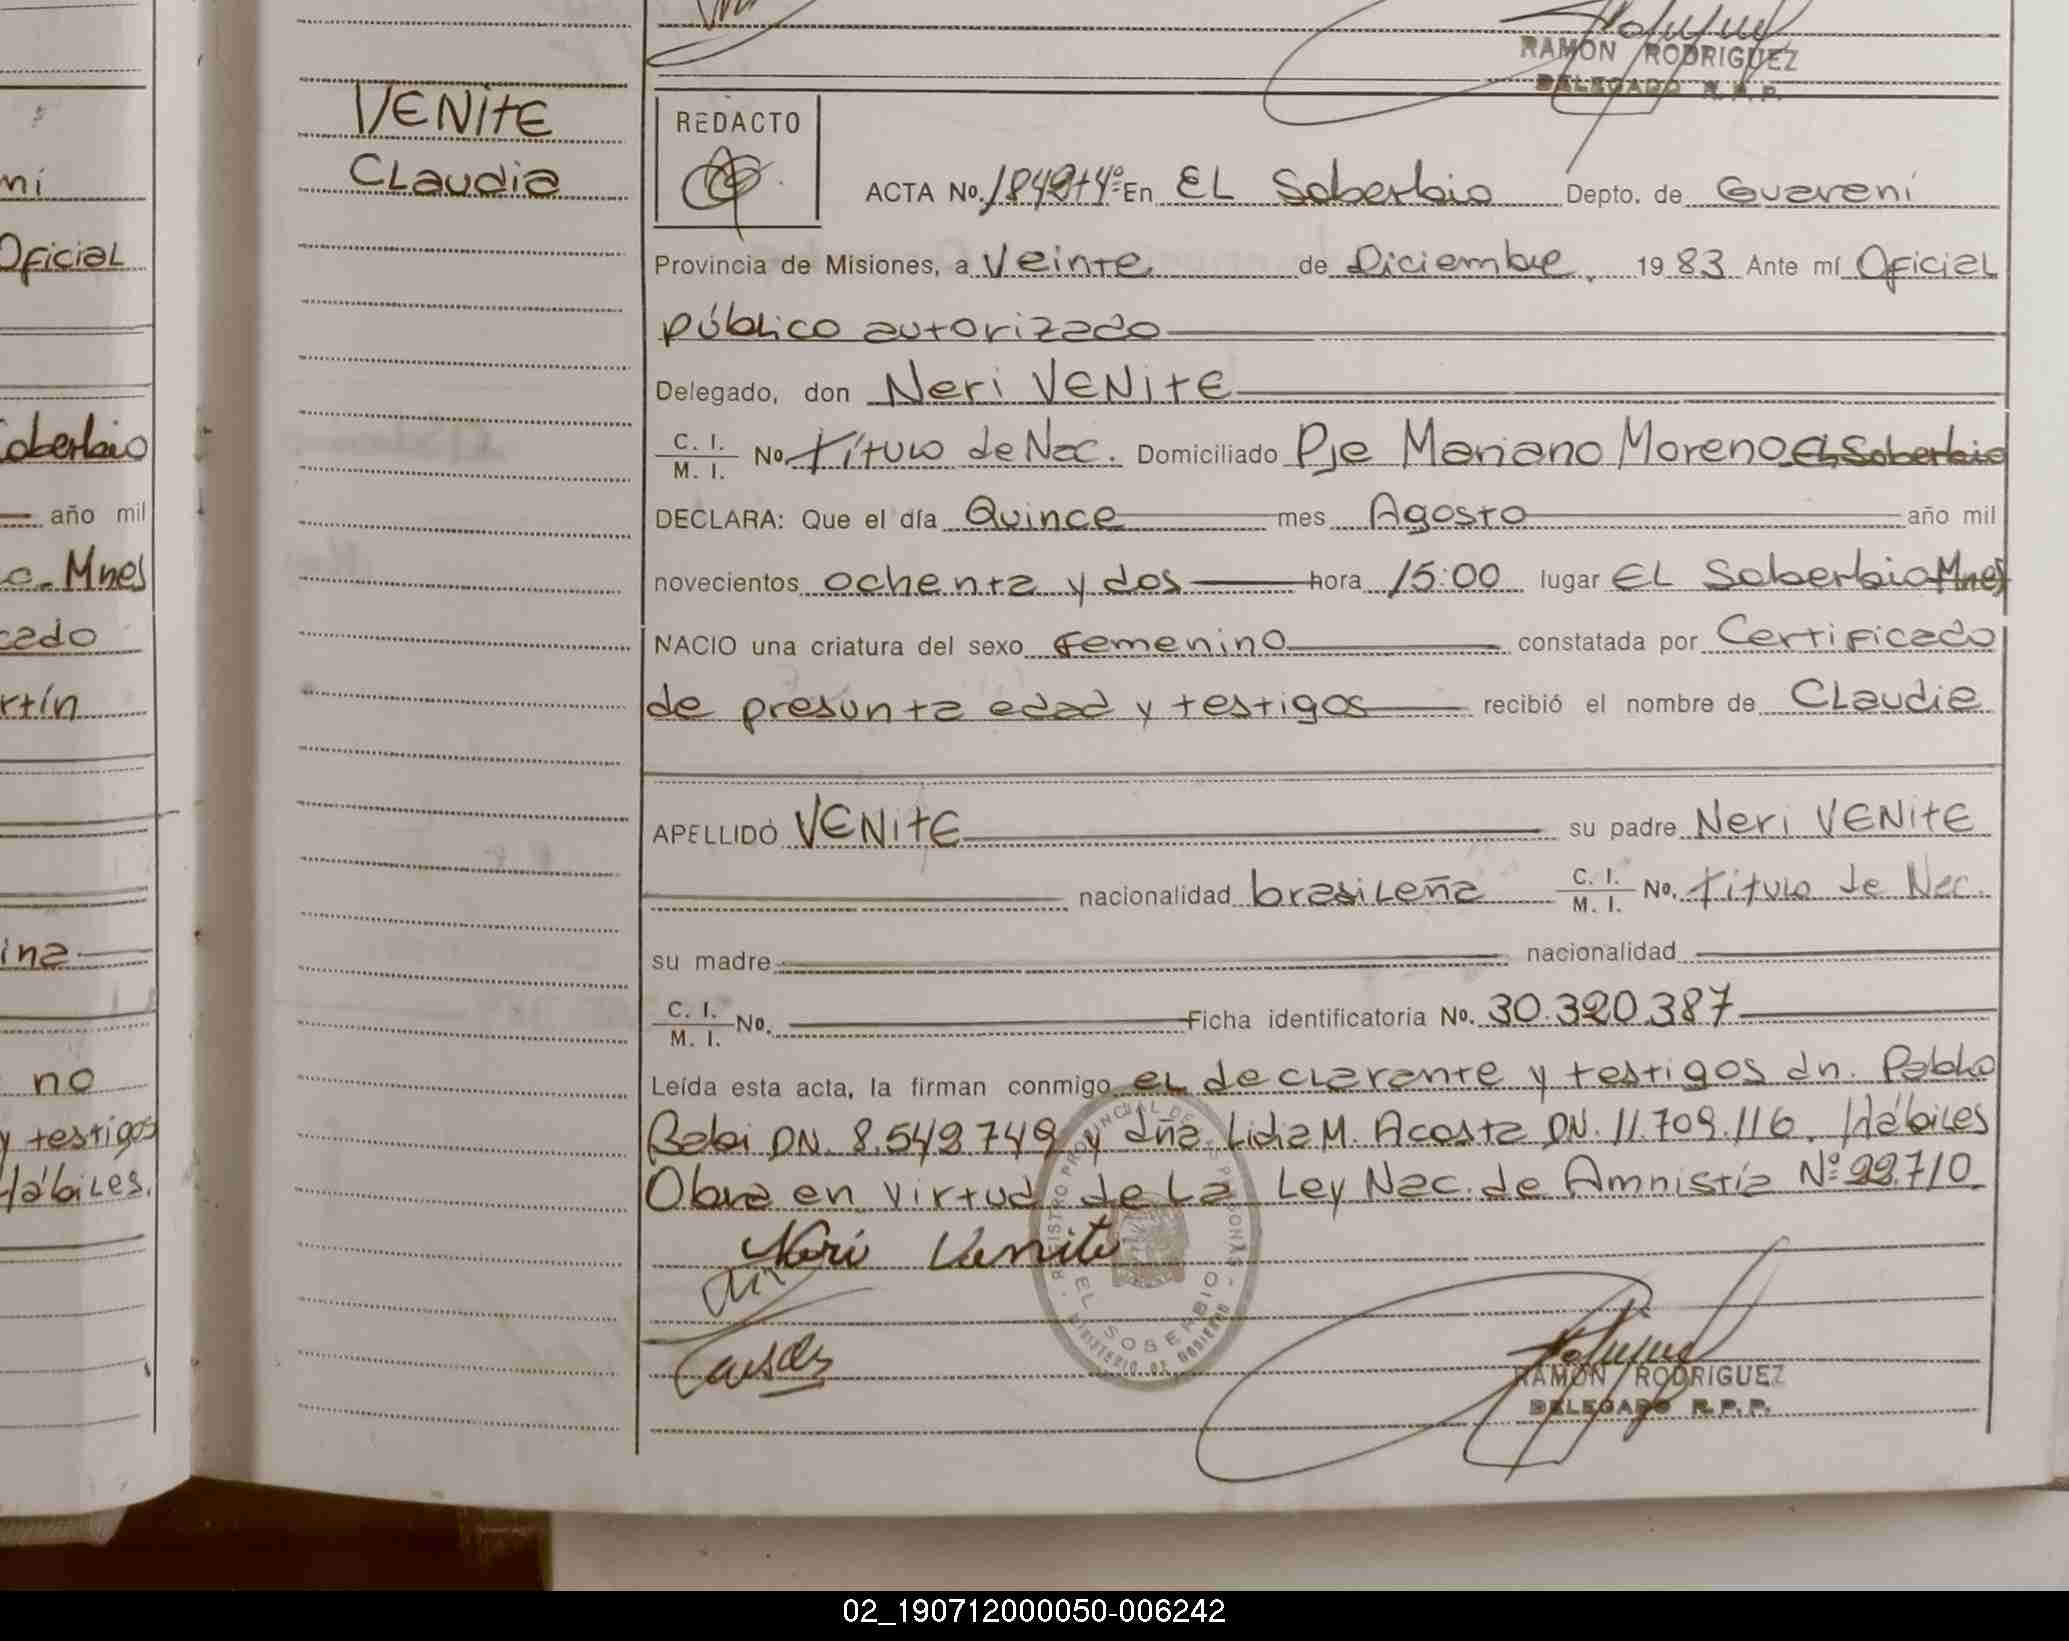 RAMON RODRIGUEZ
DELEGADO R.P.P.
VENITE
Claudia
REDACTO
ACTA No. 1849+4º En El Soberbio Depto. de Guaraní
Provincia de Misiones, a Veinte de Diciembre, 1983 Ante mí Oficial
público autorizado
Delegado, don Neri VENITE
C. I. M. I. No. título de Nac. Domiciliado Pje Mariano Moreno El Soberbio
DECLARA: Que el día Quince mes Agosto año mil
novecientos ochenta y dos hora 15:00 lugar El Soberbio Mnes
NACIO una criatura del sexo femenino constatada por Certificado
de presunta edad y testigos recibió el nombre de Claudia
APELLIDO VENITE su padre Neri VENITE
nacionalidad brasileña C. I. M. I. No. título de Nac.
su madre nacionalidad
C. I. M. I. No. Ficha identificatoria No. 30.320.387
Leída esta acta, la firman conmigo el declarante y testigos dn. Pablo
Babi DN. 8.549.749 y dña Lidia M. Acosta DN. 11.709.116. Hábiles
Obra en virtud de la Ley Nac. de Amnistía Nº 22.710
Neri Venite
REGISTRO PROVINCIAL DE LAS PERSONAS
EL SOBERBIO
MINISTERIO DE GOBIERNO
RAMON RODRIGUEZ
DELEGADO R.P.P.
ní
Oficial
Soberbio
año mil
c. Mnes
cado
rtín
ina
no
y testigos
Hábiles.
02_190712000050-006242